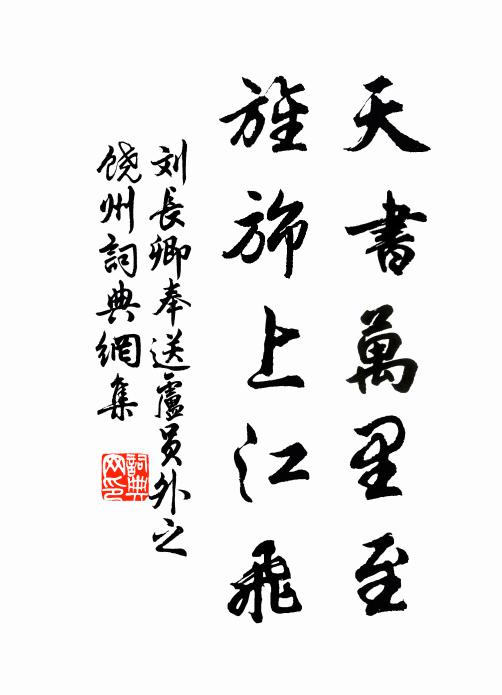 天書萬里至
旌旆上江飛
刘長卿奉送盧員外之
饶州詞典網集
詞典
网印